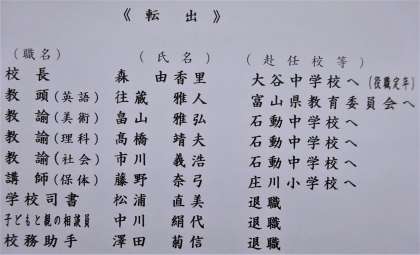 《転出》
(職名) (氏名) (赴任校等)
校長 森由香里 大谷中学校へ(役職定年)
教頭(英語) 往蔵雅人 富山県教育委員会へ
教諭(美術) 畠山雅弘 石動中学校へ
教諭(理科) 髙橋靖夫 石動中学校へ
教諭(社会) 市川義浩 石動中学校へ
講師(保体) 藤野奈弓 庄川小学校へ
学校司書 松浦直美 退職
子どもと親の相談員 中川絹代 退職
校務助手 澤田菊信 退職